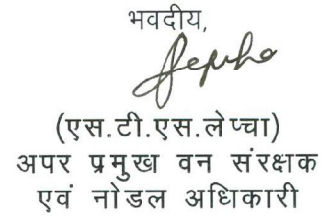 भवदीय,
(एस.टी.एस.लेप्चा)
अपर प्रमुख वन संरक्षक
एवं नोडल अधिकारी